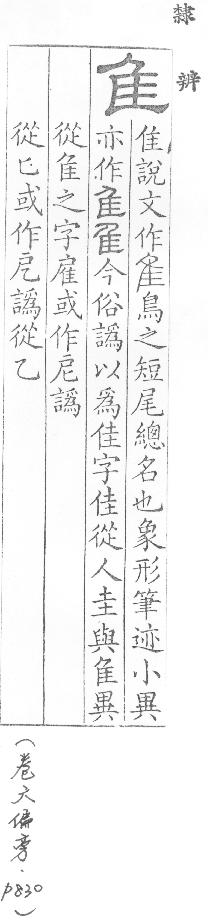 隸辨
隹
隹說文作隹鳥之短尾總名也象形筆迹小異
亦作隹隹今俗譌以爲佳字佳從人圭與隹異
從隹之字雇或作譌
從匕或作譌從乙
（卷六偏旁．p830）